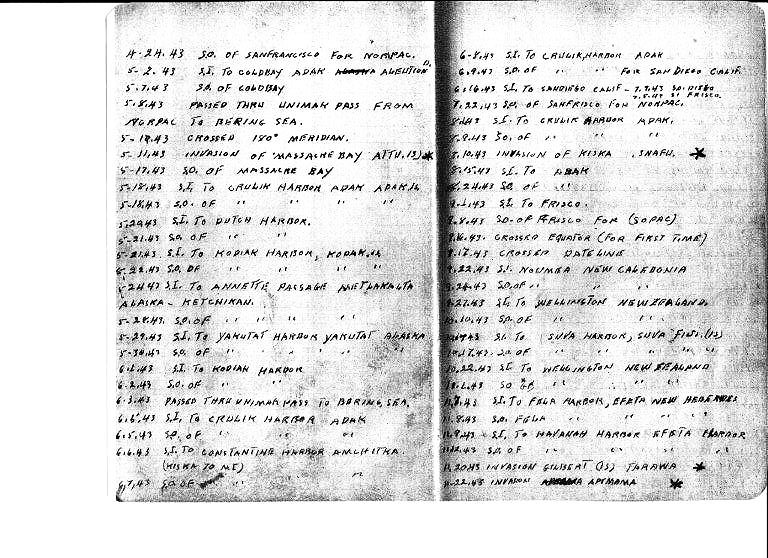 4-24.43 S.O. OF SANFRANCISCO FOR NORPAC.
5-2.43 S.I. TO COLDBAY ADAK ALEUTION
5-7.43 S.O. OF COLDBAY
5-8.43 PASSED THRU UNIMAK PASS FROM
NORPAC TO BERING SEA.
CROSSED 180° MERIDIAN.
5-11.43 INVASION OF MASSACRE BAY ATTU. IS) *
5-17.43 S.O. OF MASSACRE BAY
5-18.43 S.I. TO CRULIK HARBOR ADAK ADAK IS
5-18.43 S.O. OF " " " "
5.20.43 S.I. TO DUTCH HARBOR.
5-21.43 S.O. OF " "
5-21.43 S.I. TO KODIAK HARBOR, KODAK.IS
5-22.43 S.O. OF " " "
5-24.43 S.I. TO ANNETTE PASSAGE METLAKALTA
ALASKA - KETCHIKAN.
5-28.43. S.O. OF " " "
5-29.43 S.I. TO YAKUTAT HARBOR YAKUTAT ALASKA
5-30.43 S.O. OF " " " "
6-1.43 S.I. TO KODIAK HARBOR
6-2.43 S.O. OF " "
6-3.43 PASSED THRU UNIMAK PASS TO BERING SEA.
S.I. TO CRULIK HARBOR ADAK
6.5.43 S.O. OF " " "
6.6.43 S.I. TO CONSTANTINE HARBOR AMCHITKA
(KISKA TO ME)
6.7.43 S.O. OF " "
6-8.43 S.I. TO CRULIK HARBOR ADAK
6.9.43 S.O. OF " " FOR SAN DIEGO CALIF.
6.16.43 S.I. TO SANDIEGO CALIF - 7.7.43 S.O. DIEGO
S.I. FRISCO.
7.22.43 S.O. OF SANFRISCO FOR NORPAC.
S.I. TO CRULIK HARBOR ADAK.
8.9.43 S.O. OF " " "
8.10.43 INVASION OF KISKA. SNAFU. *
8.15.43 S.I. TO ADAK
8.24.43 S.O. OF "
9.1.43 S.I. TO FRISCO.
9.8.43 S.O. OF FRISCO FOR (SOPAC)
9.16.43. CROSSED EQUATOR (FOR FIRST TIME)
9.17.43 CROSSED DATELINE
9.22.43 S.I. NOUMEA NEW CALEDONIA
9.24.43 S.O. OF " " "
9.27.43 S.I. TO WELLINGTON NEWZEALAND.
S.O. OF " "
S.I. TO SUVA HARBOR, SUVA FIJI. (IS)
10.17.43. S.O. OF " " " "
10.22.43 S.I. TO WELLINGTON NEWZEALAND
11.1.43 S.O. OF " " "
S.I. TO FELA HARBOR, EFETA NEW HEBERDES
11.8.43 S.O. FELA " " " "
11.9.43 S.I. TO HAVANAH HARBOR EFETA HARBOR
S.O. OF " " " "
11.20.43 INVASION GILBERT (IS) TARAWA *
11-22.43 INVASION APEMAMA *